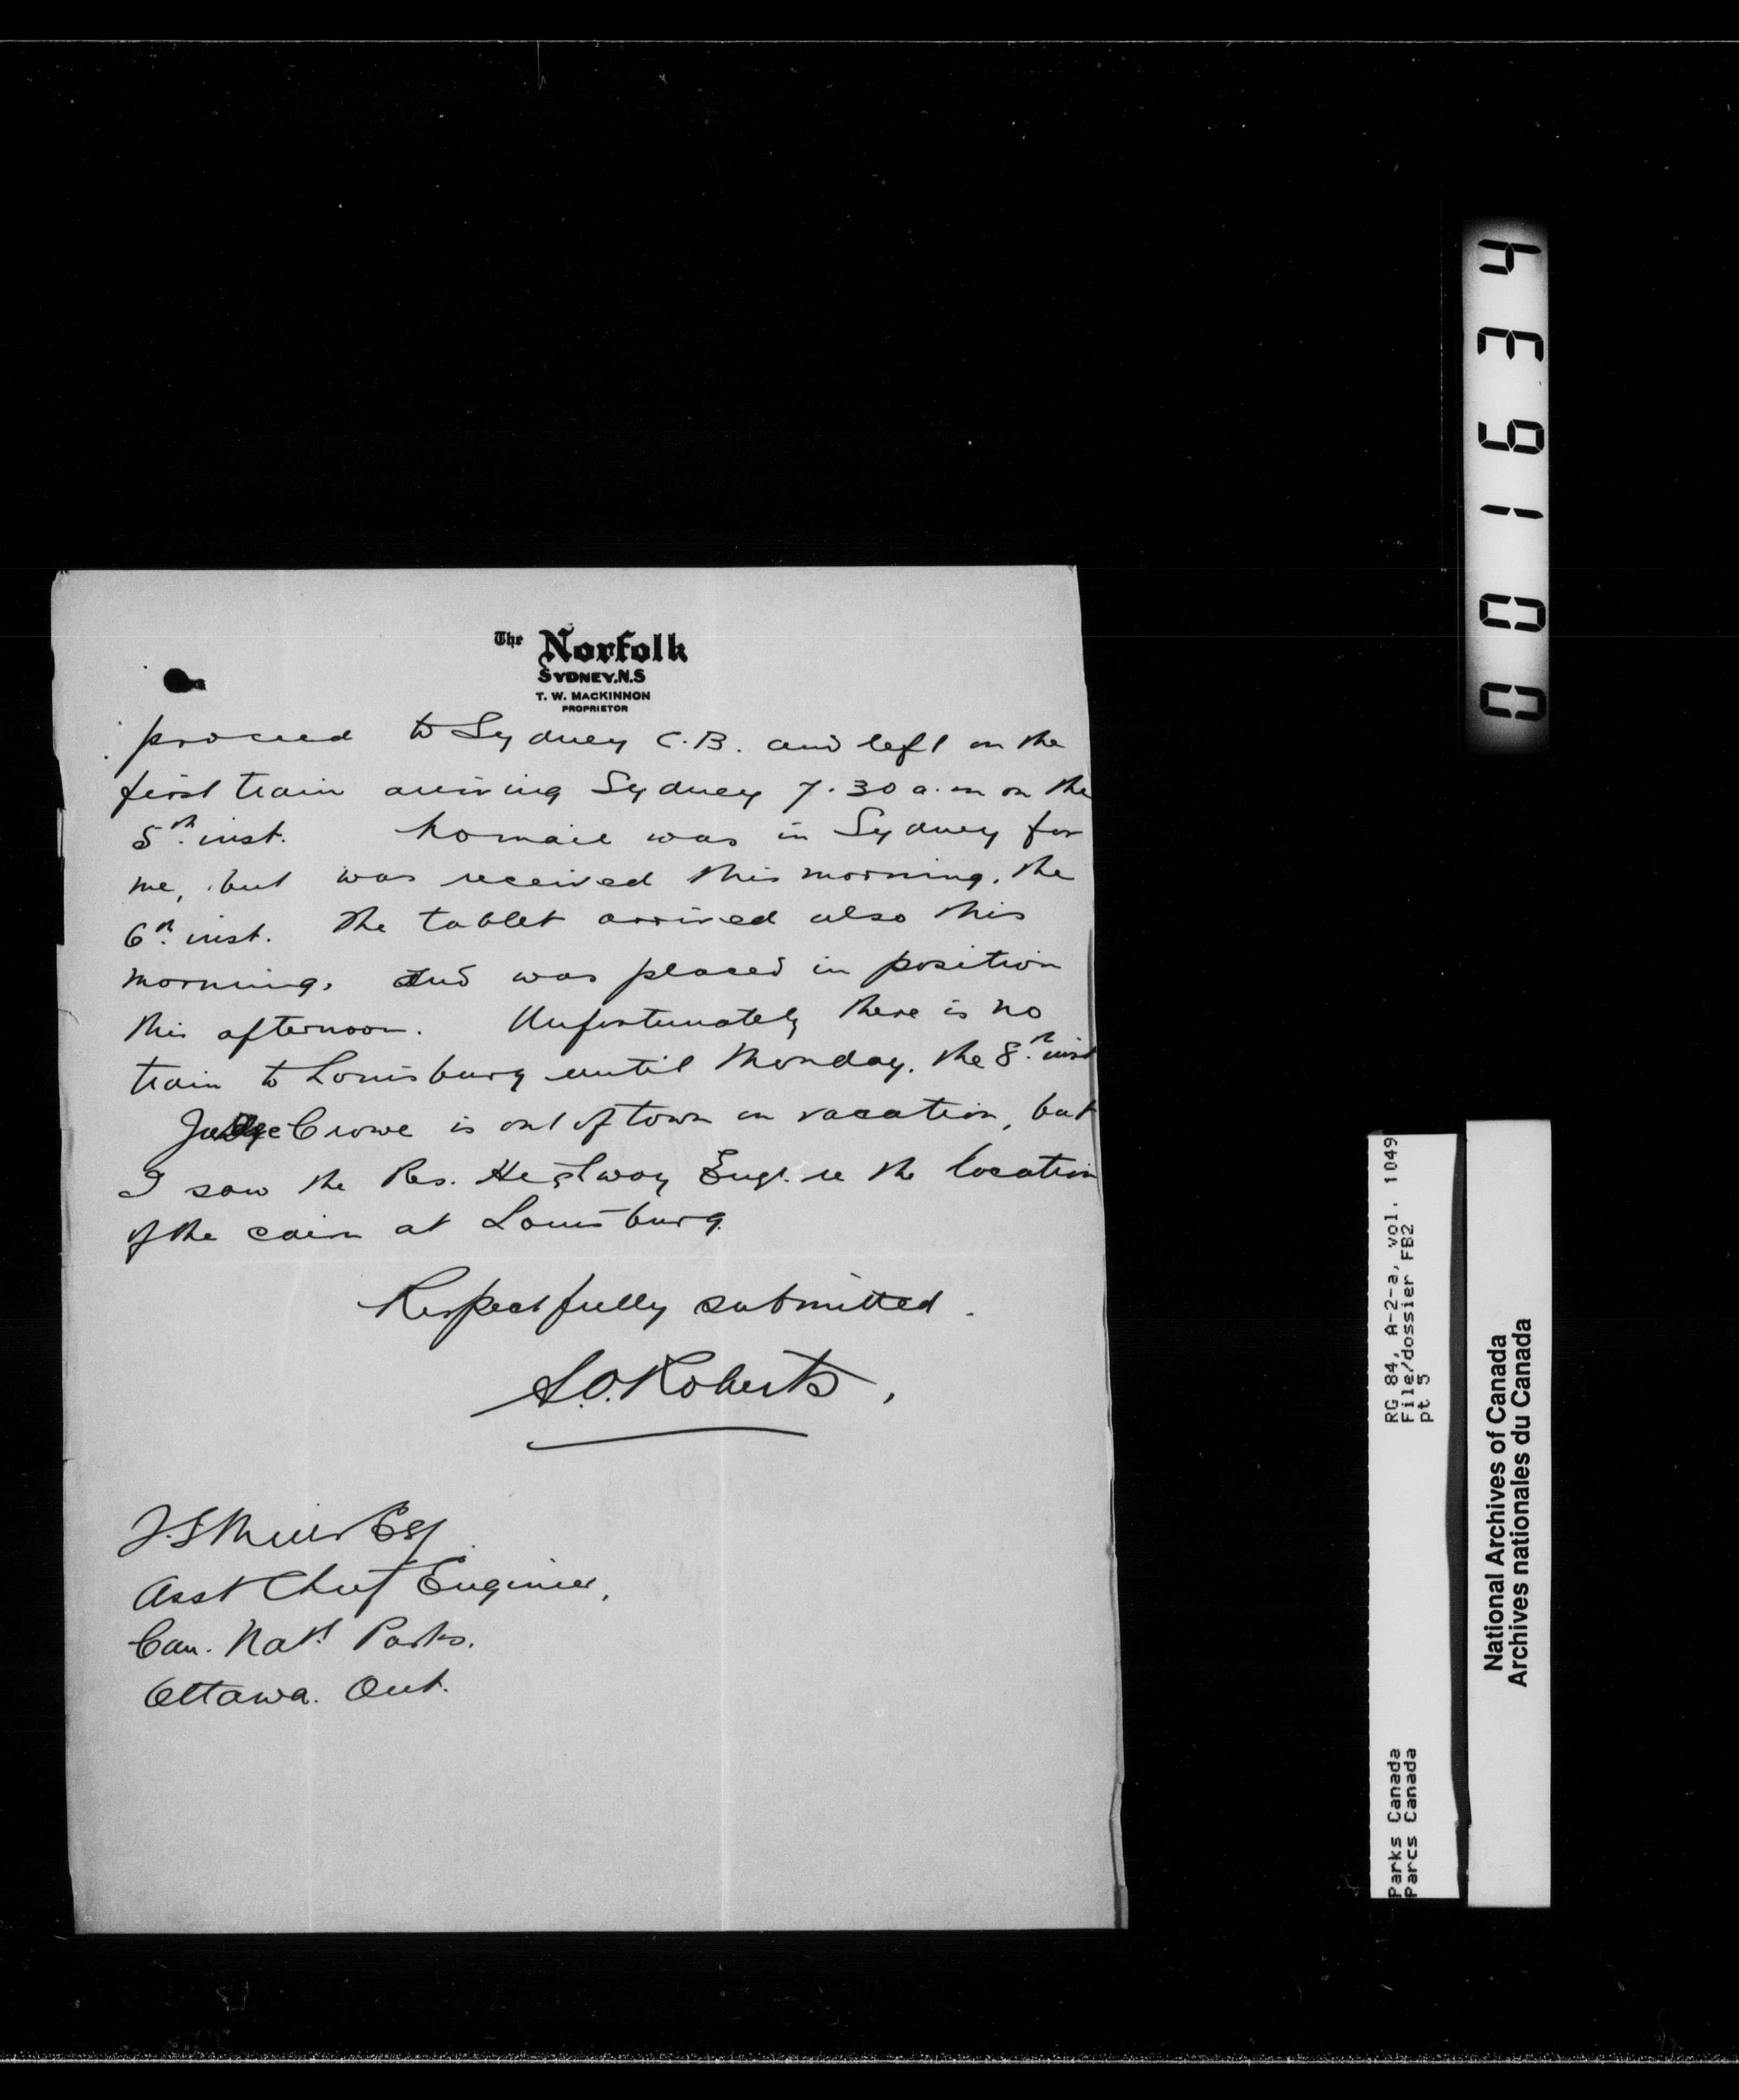 The Norfolk
SYDNEY, N.S
T. W. MACKINNON
PROPRIETOR
proceed to Sydney C.B. and left on the
first train arriving Sydney 7.30 a.m on the
5th inst. No mail was in Sydney for
me, but was received this morning, the
6th inst. The tablet arrived also this
morning, and was placed in position
this afternoon. Unfortunately there is no
train to Louisburg until Monday, the 8th inst
Judge Crowe is out of town on vacation, but
I saw the Res. Highway Engr. re the location
of the cairn at Louisburg.
Respectfully submitted.
S.O. Roberts,
Esq.
Asst Chief Engineer,
Can. Nat'l Parks.
Ottawa. Ont.
001634
RG 84, A-2-a, vol. 1049
File/dossier FB2
pt 5
Parks Canada
Parcs Canada
National Archives of Canada
Archives nationales du Canada